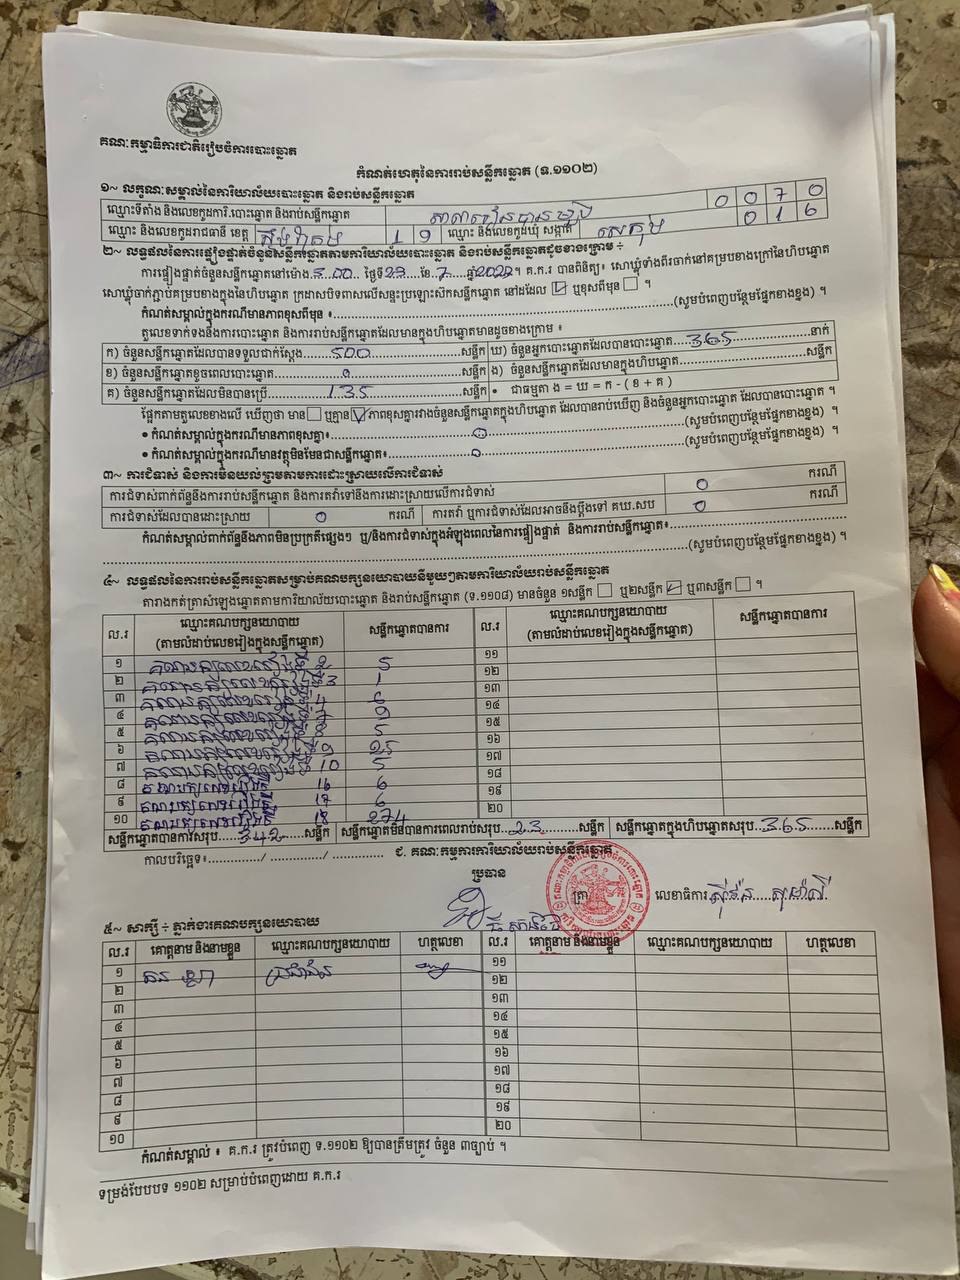 គណៈកម្មាធិការជាតិរៀបចំការបោះឆ្នោត
កំណត់ហេតុនៃការរាប់សន្លឹកឆ្នោត (ទ.១១០២)
១~ លក្ខណៈសម្គាល់នៃការិយាល័យបោះឆ្នោត និងរាប់សន្លឹកឆ្នោត
ឈ្មោះទីតាំង និងលេខកូដការិ.បោះឆ្នោត និងរាប់សន្លឹកឆ្នោត 0 0 7 0
ឈ្មោះ និងលេខកូដរាជធានី ខេត្ត 1 9 ឈ្មោះ និងលេខកូដឃុំ សង្កាត់ 0 1 6
២~ លទ្ធផលនៃការផ្ទៀងផ្ទាត់ចំនួនសន្លឹកឆ្នោតតាមការិយាល័យបោះឆ្នោត និងរាប់សន្លឹកឆ្នោតដូចខាងក្រោម ÷
ការផ្ទៀងផ្ទាត់ចំនួនសន្លឹកឆ្នោតនៅម៉ោង ថ្ងៃទី 23 ខែ 7 ឆ្នាំ គ.ក.រ បានពិនិត្យ៖ សោឃ្លុំទាំងពីរចាក់នៅគម្របខាងក្រៅនៃហិបឆ្នោត
សោឃ្លុំចាក់ភ្ជាប់គម្របខាងក្នុងនៃហិបឆ្នោត ក្រដាសបិទពាសលើសន្ទះប្រឡោះស៊កសន្លឹកឆ្នោត នៅដដែល ឬខុសពីមុន ។
កំណត់សម្គាល់ក្នុងករណីមានភាពខុសពីមុន ៖ (សូមបំពេញបន្ថែមផ្នែកខាងខ្នង) ។
តួលេខទាក់ទងនឹងការបោះឆ្នោត និងការរាប់សន្លឹកឆ្នោតដែលមានក្នុងហិបឆ្នោតមានដូចខាងក្រោម ៖
ក) ចំនួនសន្លឹកឆ្នោតដែលបានទទួលជាក់ស្តែង 500 សន្លឹក ឃ) ចំនួនអ្នកបោះឆ្នោតដែលបានបោះឆ្នោត 365 នាក់
ខ) ចំនួនសន្លឹកឆ្នោតខូចពេលបោះឆ្នោត សន្លឹក ង) ចំនួនសន្លឹកឆ្នោតដែលមានក្នុងហិបឆ្នោត សន្លឹក
គ) ចំនួនសន្លឹកឆ្នោតដែលមិនបានប្រើ 135 សន្លឹក • ជាធម្មតា ង = ឃ = ក - ( ខ + គ )
ផ្អែកតាមតួលេខខាងលើ ឃើញថា មាន ឬគ្មាន ភាពខុសគ្នារវាងចំនួនសន្លឹកឆ្នោតក្នុងហិបឆ្នោត ដែលបានរាប់ឃើញ និងចំនួនអ្នកបោះឆ្នោត ដែលបានបោះឆ្នោត ។
• កំណត់សម្គាល់ក្នុងករណីមានភាពខុសគ្នា៖ 0 (សូមបំពេញបន្ថែមផ្នែកខាងខ្នង) ។
• កំណត់សម្គាល់ក្នុងករណីមានវត្ថុមិនមែនជាសន្លឹកឆ្នោត៖ 0 (សូមបំពេញបន្ថែមផ្នែកខាងខ្នង) ។
៣~ ការជំទាស់ និងការមិនយល់ព្រមតាមការដោះស្រាយលើការជំទាស់
ការជំទាស់ពាក់ព័ន្ធនឹងការរាប់សន្លឹកឆ្នោត និងការតវ៉ាទៅនឹងការដោះស្រាយលើការជំទាស់ 0 ករណី
ការជំទាស់ដែលបានដោះស្រាយ 0 ករណី ការតវ៉ា ឬការជំទាស់ដែលអាចនឹងប្តឹងទៅ គឃ.សប 0 ករណី
កំណត់សម្គាល់ពាក់ព័ន្ធនឹងភាពមិនប្រក្រតីផ្សេងៗ ឬ/និងការជំទាស់ក្នុងអំឡុងពេលនៃការផ្ទៀងផ្ទាត់ និងការរាប់សន្លឹកឆ្នោត៖
(សូមបំពេញបន្ថែមផ្នែកខាងខ្នង) ។
៤~ លទ្ធផលនៃការរាប់សន្លឹកឆ្នោតសម្រាប់គណបក្សនយោបាយនីមួយៗតាមការិយាល័យរាប់សន្លឹកឆ្នោត
តារាងកត់ត្រាសំឡេងឆ្នោតតាមការិយាល័យបោះឆ្នោត និងរាប់សន្លឹកឆ្នោត (ទ.១១០៨) មានចំនួន ១សន្លឹក ឬ២សន្លឹក ឬ៣សន្លឹក ។
ល.រ ឈ្មោះគណបក្សនយោបាយ (តាមលំដាប់លេខរៀងក្នុងសន្លឹកឆ្នោត) សន្លឹកឆ្នោតបានការ ល.រ ឈ្មោះគណបក្សនយោបាយ (តាមលំដាប់លេខរៀងក្នុងសន្លឹកឆ្នោត) សន្លឹកឆ្នោតបានការ
១ 2 5 ១១
២ 3 1 ១២
៣ 4 6 ១៣
៤ 9 ១៤
៥ 5 ១៥
៦ 9 25 ១៦
៧ 10 5 ១៧
៨ 16 6 ១៨
៩ 17 6 ១៩
១០ 18 274 ២០
សន្លឹកឆ្នោតបានការសរុប 342 សន្លឹក សន្លឹកឆ្នោតមិនបានការពេលរាប់សរុប 23 សន្លឹក សន្លឹកឆ្នោតក្នុងហិបឆ្នោតសរុប 365 សន្លឹក
កាលបរិច្ឆេទ៖ / / ជ. គណៈកម្មការការិយាល័យរាប់សន្លឹកឆ្នោត
ប្រធាន
ត្រា លេខាធិការ
៥~ សាក្សី ÷ ភ្នាក់ងារគណបក្សនយោបាយ
ល.រ គោត្តនាម និងនាមខ្លួន ឈ្មោះគណបក្សនយោបាយ ហត្ថលេខា ល.រ គោត្តនាម និងនាមខ្លួន ឈ្មោះគណបក្សនយោបាយ ហត្ថលេខា
១ ប្រជាជន ១១
២ ១២
៣ ១៣
៤ ១៤
៥ ១៥
៦ ១៦
៧ ១៧
៨ ១៨
៩ ១៩
១០ ២០
កំណត់សម្គាល់ ៖ គ.ក.រ ត្រូវបំពេញ ទ.១១០២ ឱ្យបានត្រឹមត្រូវ ចំនួន ៣ច្បាប់ ។
ទម្រង់បែបបទ ១១០២ សម្រាប់បំពេញដោយ គ.ក.រ